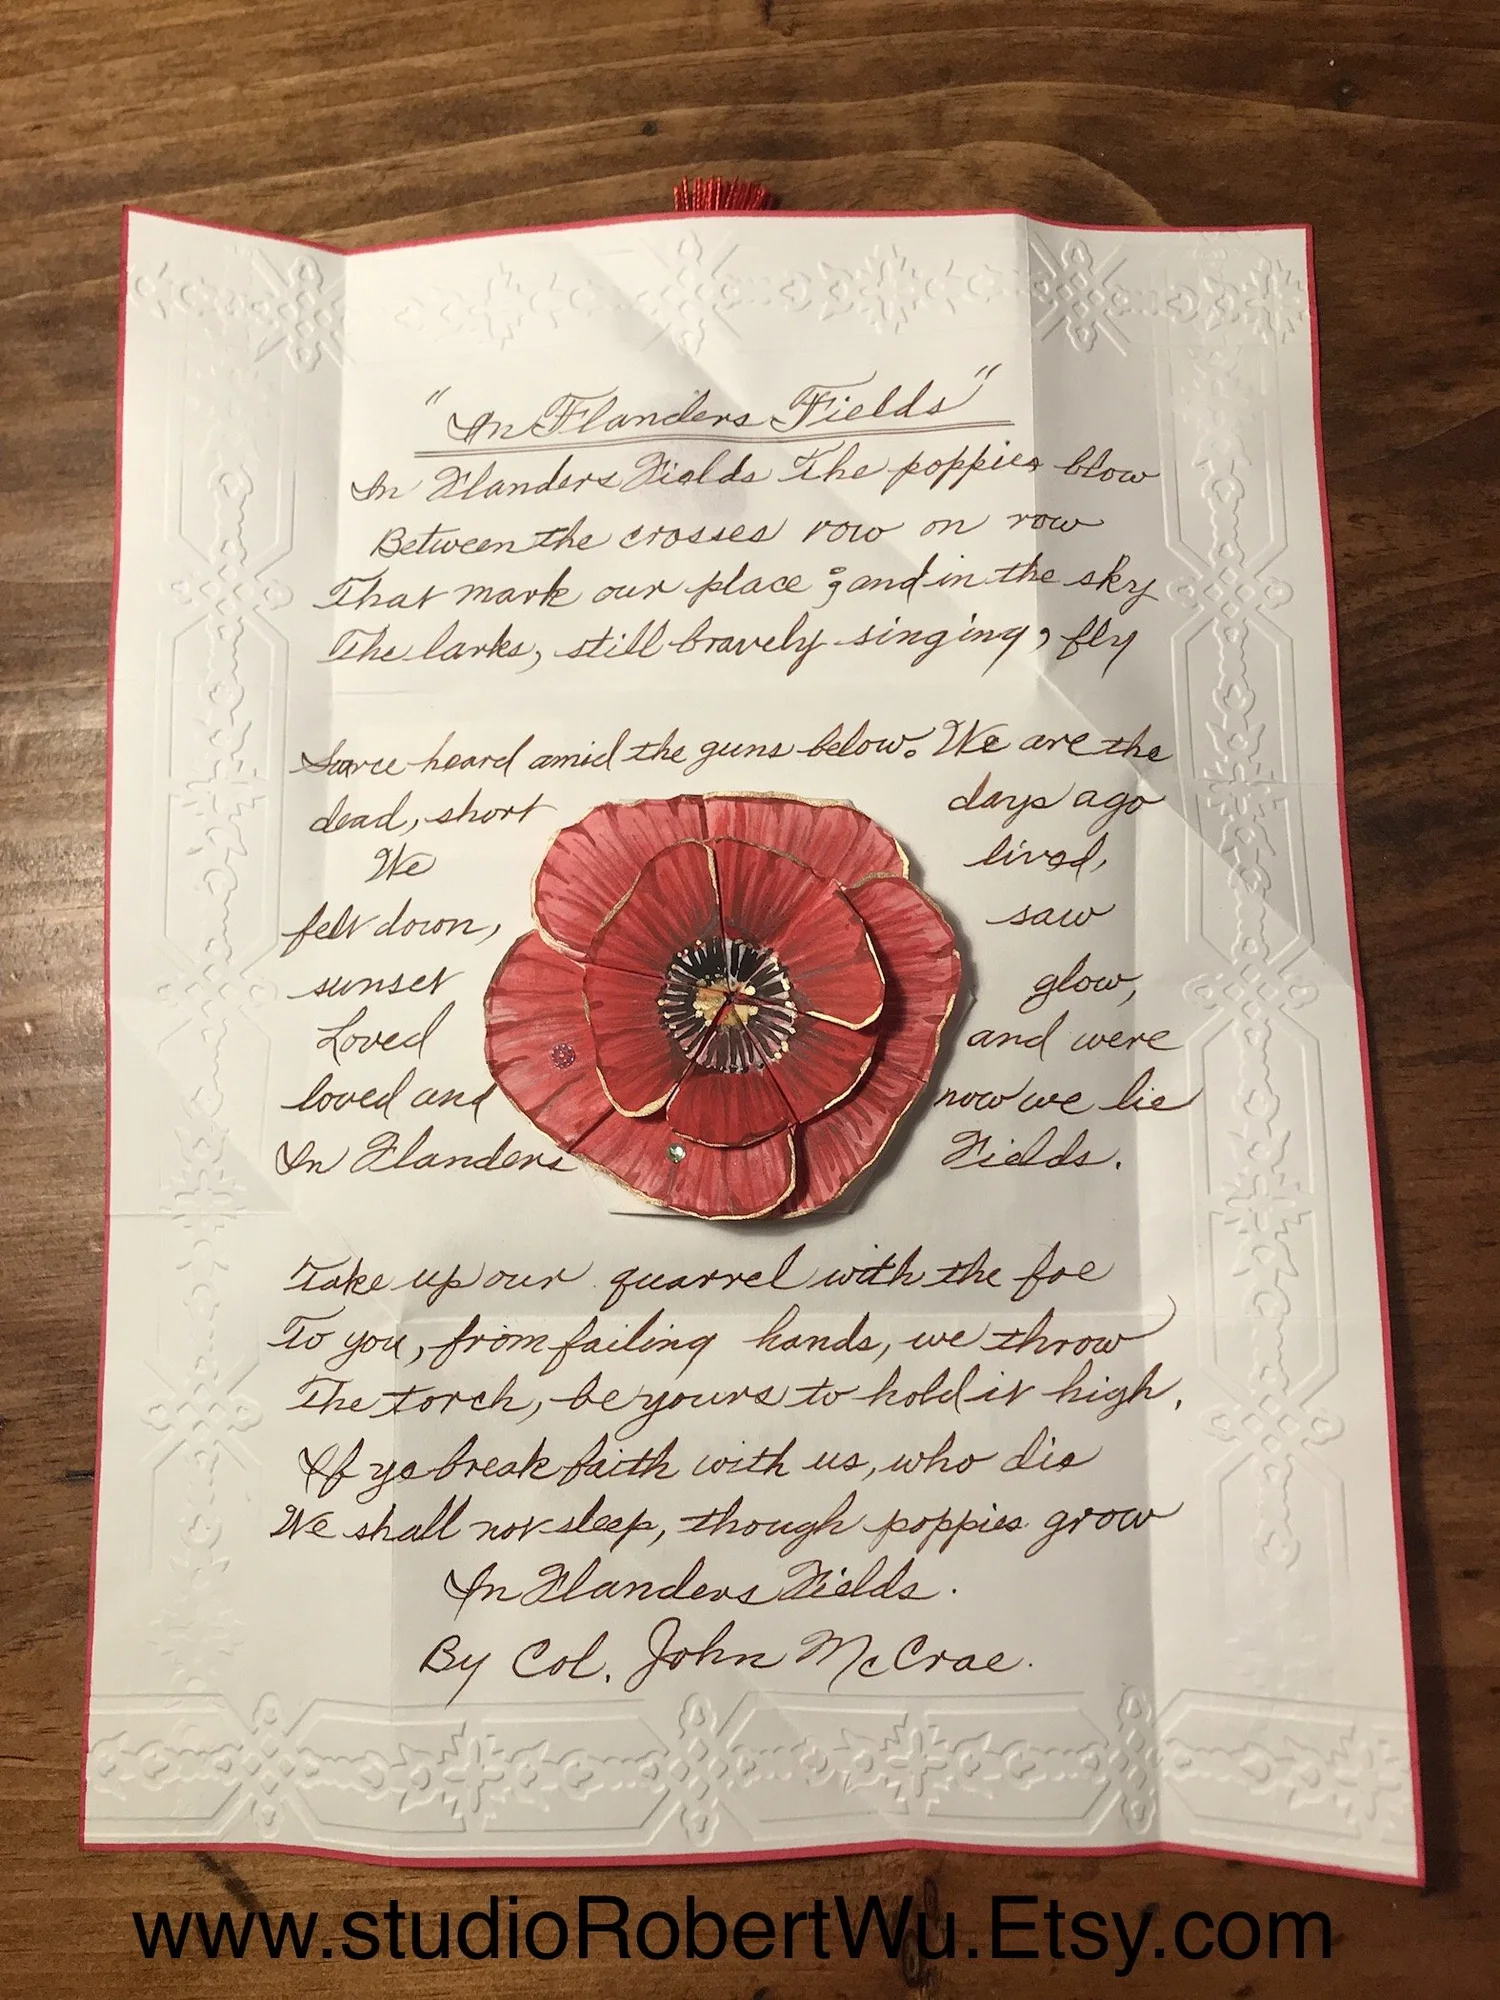 "In Flanders Fields"
In Flanders Fields The poppies blow
Between the crosses row on row
That mark our place ; and in the sky
The larks, still bravely singing, fly
Scarce heard amid the guns below. We are the
dead, short days ago
We lived,
felt down, saw
sunset glow,
Loved and were
loved and now we lie
In Flanders Fields.
Take up our quarrel with the foe
To you, from failing hands, we throw
The torch, be yours to hold it high.
If ye break faith with us, who die
We shall not sleep, though poppies grow
In Flanders Fields.
By Col. John McCrae.
www.studioRobertWu.Etsy.com